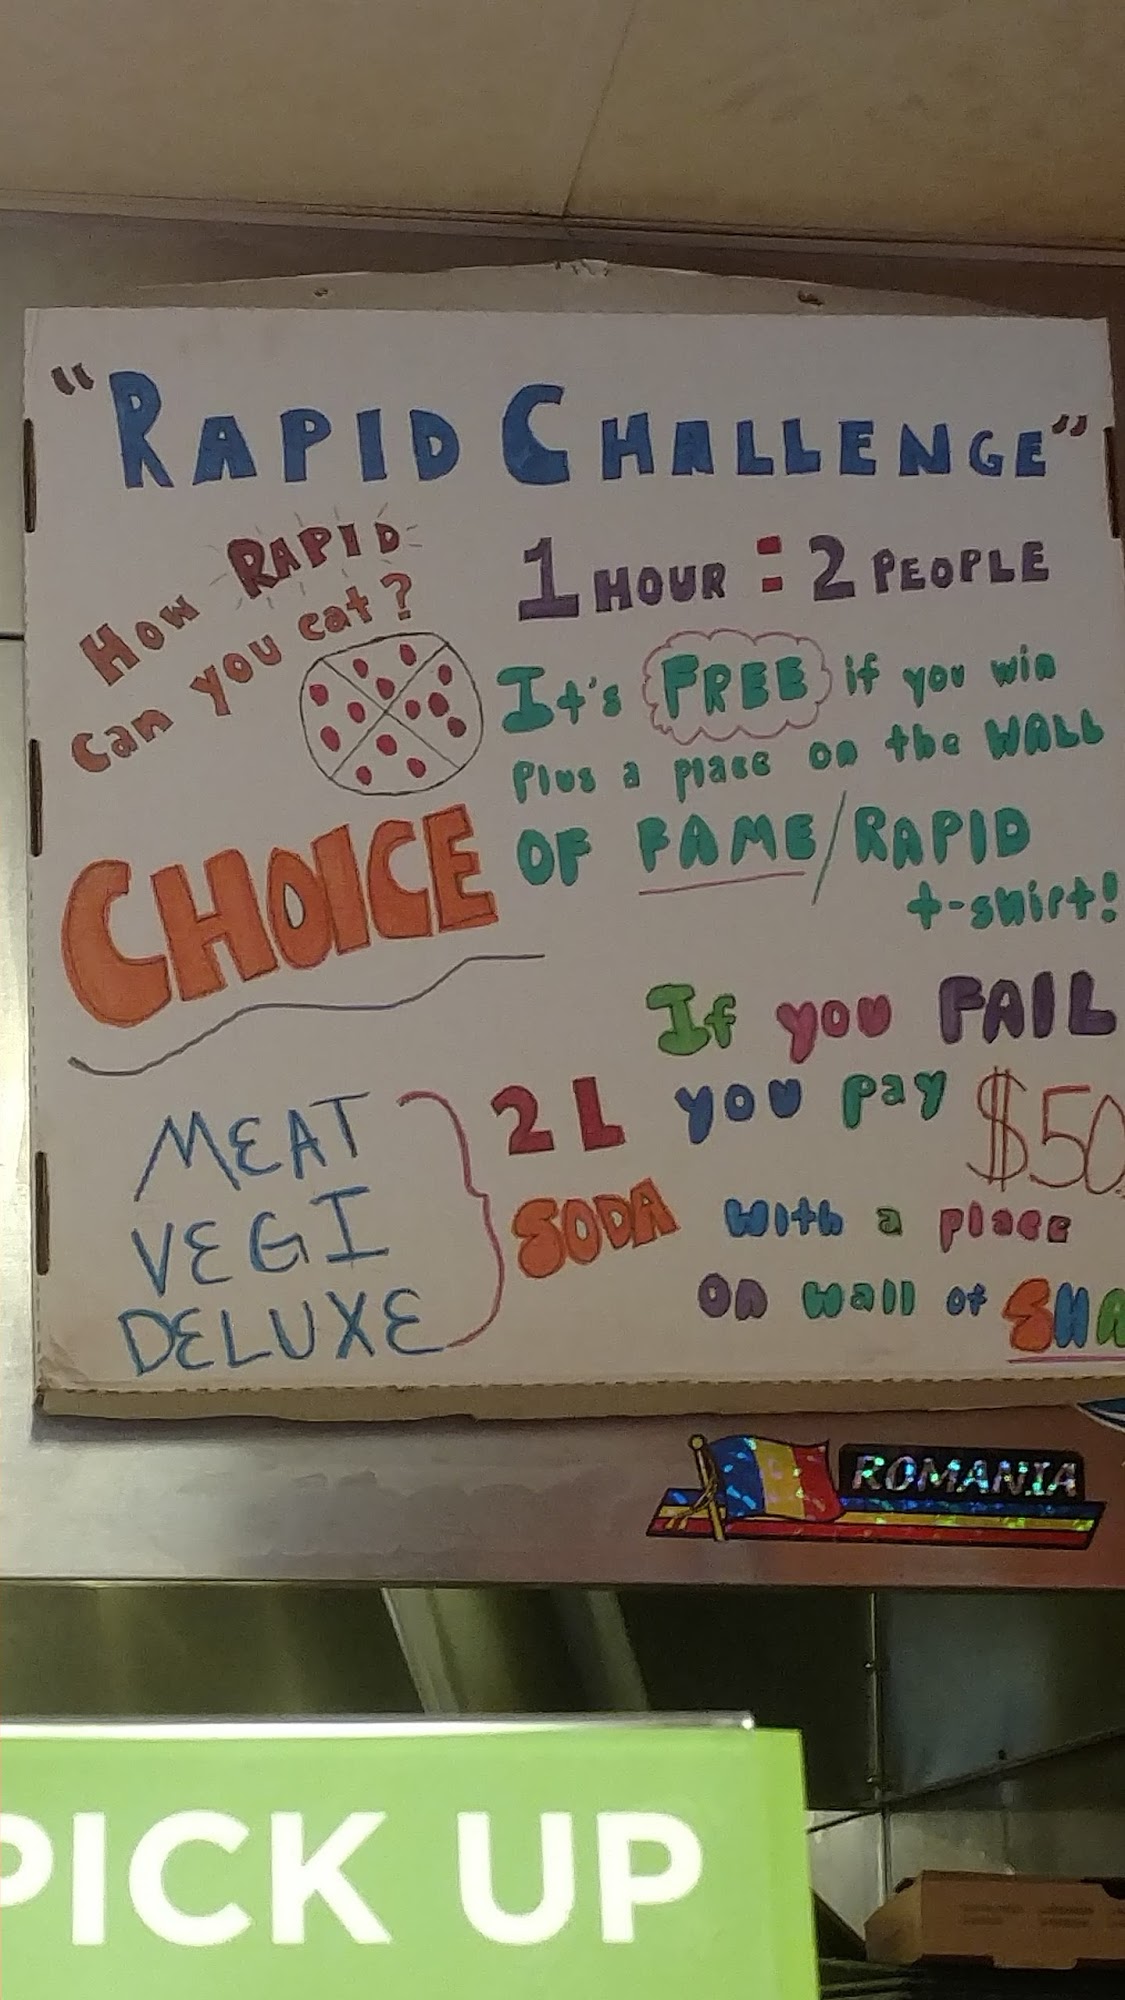 "RAPID CHALLENGE"
How RAPID
can you eat?
1 HOUR = 2 PEOPLE
It's FREE if you win
Plus a place on the WALL
OF FAME/RAPID
t-shirt!
CHOICE
MEAT
VEGI
DELUXE
2 L
SODA
If you FAIL
you pay $50
with a place
on wall of SHA
ROMANIA
PICK UP